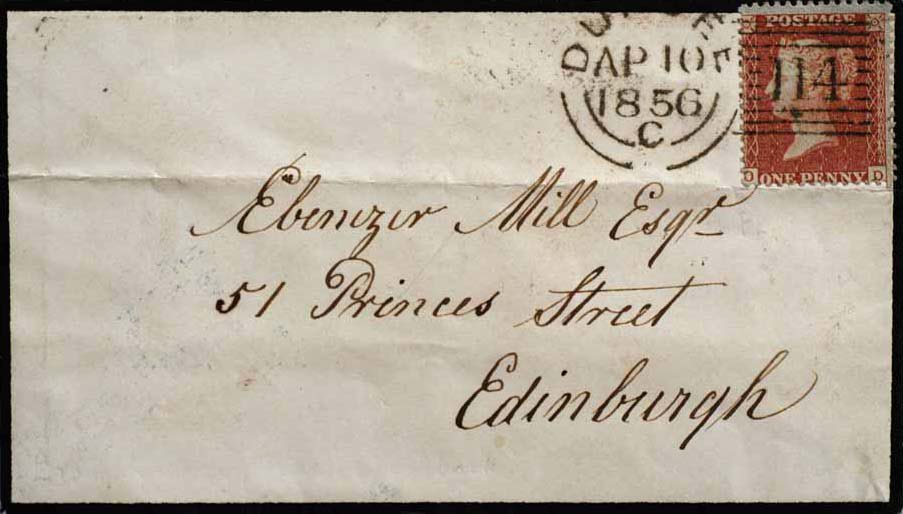 DUNDEE
AP 10
1856
C
POSTAGE
114
D D
ONE PENNY
Ebenezer Mill Esqr
51 Princes Street
Edinburgh